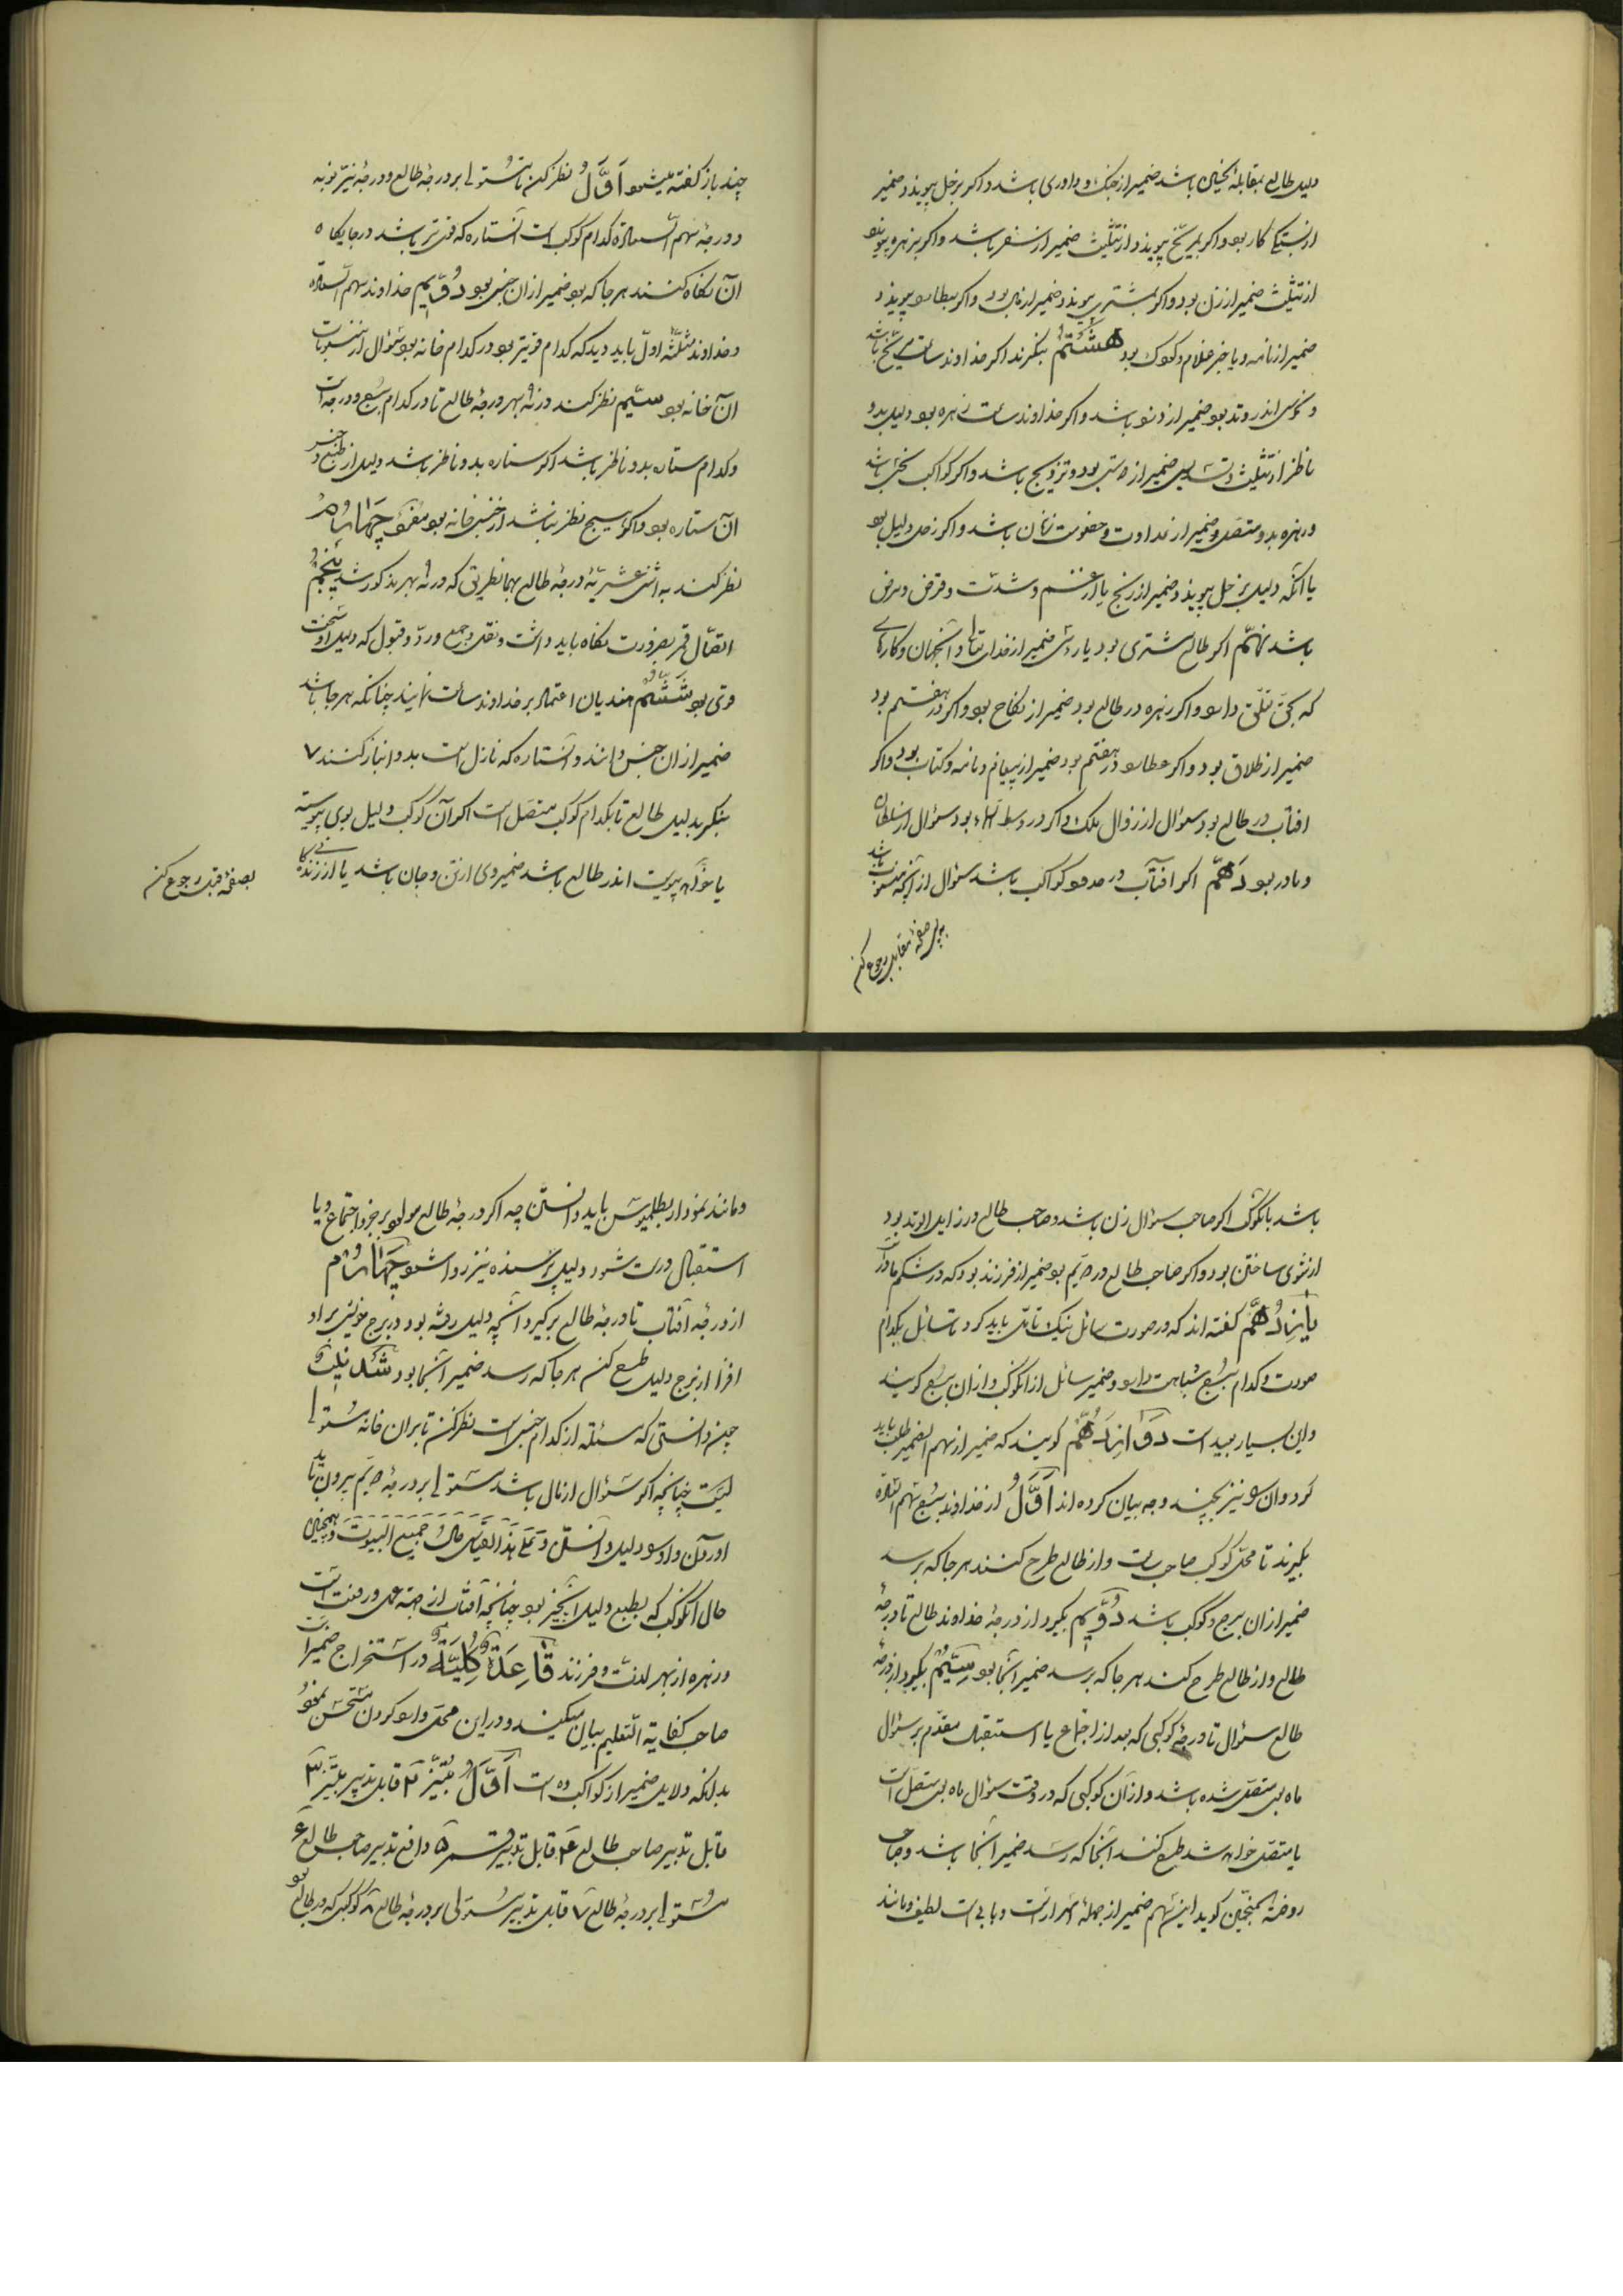 دلیل طالع بمقابلهٔ نحسان باشد ضمیر از جنک و داوری باشد و اکر بزحل پیوندد ضمیر
از بستکی کار بود و اکر بمریخ پیوندد از تثلیث ضمیر از سفر باشد و اکر بزهره پیوندد
از تثلیث ضمیر از زن بود و اکر بمشتری پیوندد ضمیر از مال بود و اکر بعطارد پیوندد
ضمیر از نامه و یا خبر غلام و کودک بود هشتم بنکرند اکر خداوند ساعت مریخ باشد
و نحوس اندر وتد بود ضمیر از دزد باشد و اکر خداوند ساعت زهره بود دلیل بدو
ناظر از تثلیث و تسدیس ضمیر از دوستی بود و تزویج باشد و اکر کواکب نحس باشد
و زهره بدو متصل ضمیر از عداوت و خصومت زنان باشد و اکر زحل دلیل بود
یا آنکه دلیل بزحل پیوندد ضمیر از رنج یا از غم و شدت و قرض و مرض
باشد نهم اکر طالع مشتری بود یا
که بحق تعلق دارد و اکر زهره در طالع بود ضمیر از نکاح بود و اکر در هفتم بود
ضمیر از طلاق بود و اکر عطارد در هفتم بود ضمیر از پیغام و نامه و کتاب بود و اکر
افتاب در طالع بود سؤال از زوال ملک و اکر در وسط السماء بود سؤال از سلطان
و مادر بود دهم اکر افتاب در حدود کواکب باشد سؤال از آنچه منسوب باشد
به پس صفحهٔ مقابل رجوع کن
چند باز کفته میشود اول نظر کن تا مستولی بر درجهٔ طالع و درجهٔ نیر نوبه
و درجهٔ سهم السعادة کدام کوکب است آن ستاره که قوی تر باشد در جایکاه
آن نکاه کنند هر جا که بود ضمیر از ان جنس بود دویم خداوند سهم السعادة
و خداوند مثلثهٔ اول باید دید که کدام قویتر بود در کدام خانه بود سؤال از منسوبات
آن خانه بود سیم نظر کنند در نه بهر درجهٔ طالع تا در کدام برج و درجه است
و کدام ستاره بدو ناظر باشد اکر ستاره بدو ناظر باشد دلیل از طبع و جنس
آن ستاره بود و اکر هیچ نظر نباشد از جنس خانه بود چهارم
نظر کنند به اثنی عشریهٔ درجهٔ طالع بهمانطریق که در نه بهر مذکور شد پنجم
اتصال قمر بضرورت نکاه باید داشت و نقل و جمع و رد و قبول که دلیل او سخت
قوی بود ششم هندیان اعتماد بر خداوند ساعت نمایند چنانکه هر جا باشد
ضمیر از ان جنس دانند و آن ستاره که نازل است بدو انباز کنند ۷
بنکر بدلیل طالع تا بکدام کوکب متصل است اکر آن کوکب دلیل بوی پیوسته
یا پیوست اندر طالع باشد ضمیر وی از تن و جان باشد یا از زندکانی
بصفحهٔ قبل رجوع کن
باشد بانکوکب اکر صاحب سؤال زن باشد و صاحب طالع در زایل الوتد بود
از شوی ساختن بود و اکر صاحب طالع در پنجم بود ضمیر از فرزند بود که در شکم مادر
یازدهم کفته اند که در صورت سائل نیک تامل باید کرد تا سائل بکدام
صورت و کدام برج شباهت دارد و ضمیر سائل از انکوکب و از ان برج کویند
و این بسیار بعید است دوازدهم کویند که ضمیر از سهم الضمیر طلب باید
کرد و ان سهم نیز بچند وجه بیان کرده اند اول از خداوند برج سهم السعادة
بکیرند تا محل کوکب صاحب ساعت و از طالع طرح کنند هر جا که برسد
ضمیر از ان برج و کوکب باشد دویم بکیرد از درجهٔ خداوند طالع تا درجهٔ
طالع و از طالع طرح کند هر جا که برسد ضمیر آنجا بود سیم بکیرد از درجهٔ
طالع سؤال تا درجهٔ کوکبی که بعد از اجتماع یا استقبال مقدم بر سؤال
ماه بوی متصل شده باشد و از آن کوکبی که در وقت سؤال ماه بوی متصل است
یا متصل خواهد شد طرح کنند آنجا که رسد ضمیر آنجا باشد و صاحب
روضة المنجمین کوید این سهم ضمیر از جملهٔ اسرار است و بابی است لطیف و مانند
و مانند نمودار بطلمیوس باید دانستن چه اکر درجهٔ طالع مولود بر جزو اجتماع و یا
استقبال درست شود دلیل پرسنده نیز روا شود چهارم
از درجهٔ آفتاب تا درجهٔ طالع برکیرد آنچه دلیل رفته بود در برج خویش بر او
افزا از برج دلیل طرح کن هر جا که رسد ضمیر آنجا بود
چون دانستی که مسئله از کدام جنس است نظر کن تا بران خانه مستولی
کیست چنانچه اکر سؤال از مال باشد مستولی بر درجهٔ دویم بیرون باید
آوردن و او را دلیل دانستن و علی هذا القیاس حال جمیع البیوت و همچنین
حال انکوکب که بطبع دلیل آنچیز بود چنانچه آفتاب از جهة عمل و رفعت است
و زهره از بهر لذت و فرزند قاعدة کلیة در استخراج ضمیر است
صاحب کفایة التعلیم بیان میکند و در این محل وارد کردن مستحسن نمود
بدانکه دلایل ضمیر از کواکب ده است اول نیر ۲ قابل تدبیر نیر ۳
قابل تدبیر صاحب طالع ۴ قابل تدبیر قمر ۵ دافع تدبیر صاحب طالع ۶
مستولی بر درجهٔ طالع ۷ قابل تدبیر مستولی بر درجهٔ طالع ۸ کوکبی که در طالع بود